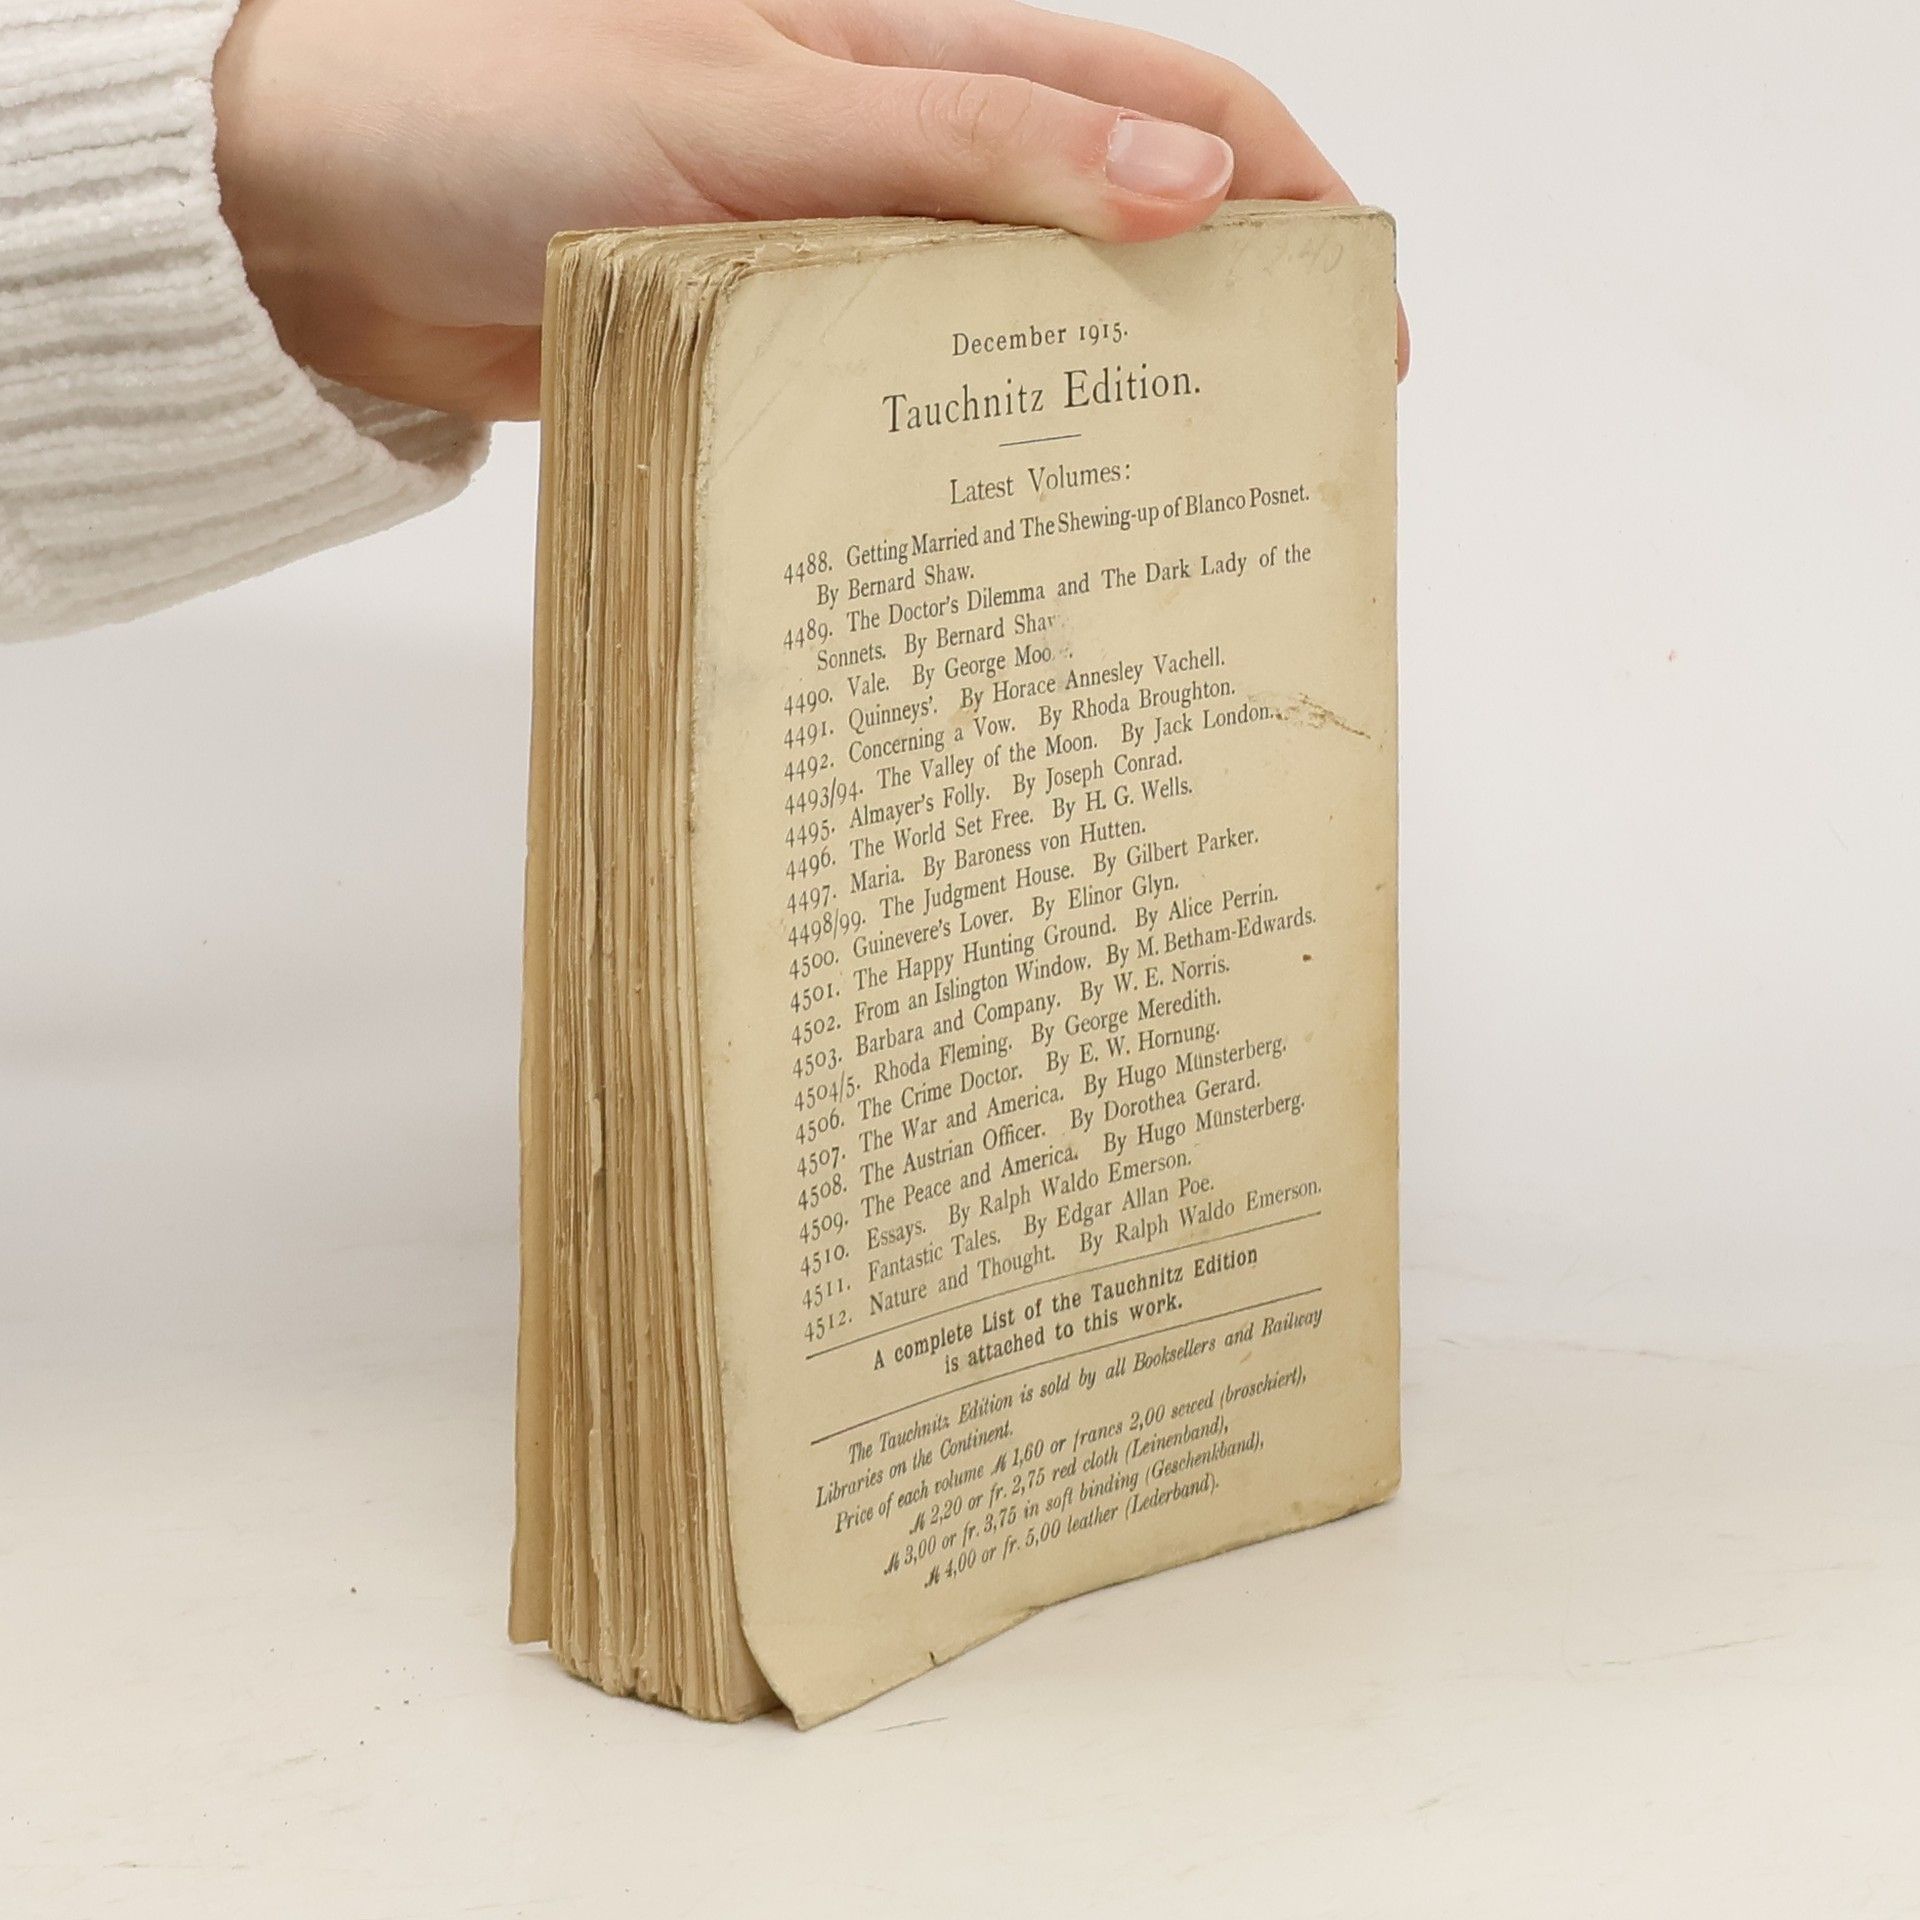 December 1915.
Tauchnitz Edition.
Latest Volumes:
4488. Getting Married and The Shewing-up of Blanco Posnet.
By Bernard Shaw.
4489. The Doctor's Dilemma and The Dark Lady of the
Sonnets. By Bernard Shaw
4490. Vale. By George
4491. Quinneys'. By Horace Annesley Vachell.
4492. Concerning a Vow. By Rhoda Broughton.
4493/94. The Valley of the Moon. By Jack London.
4495. Almayer's Folly. By Joseph Conrad.
4496. The World Set Free. By H. G. Wells.
4497. Maria. By Baroness von Hutten.
4498/99. The Judgment House. By Gilbert Parker.
4500. Guinevere's Lover. By Elinor Glyn.
4501. The Happy Hunting Ground. By Alice Perrin.
4502. From an Islington Window. By M. Betham-Edwards.
4503. Barbara and Company. By W. E. Norris.
4504/5. Rhoda Fleming. By George Meredith.
4506. The Crime Doctor. By E. W. Hornung.
4507. The War and America. By Hugo Münsterberg.
4508. The Austrian Officer. By Dorothea Gerard.
4509. The Peace and America. By Hugo Münsterberg.
4510. Essays. By Ralph Waldo Emerson.
4511. Fantastic Tales. By Edgar Allan Poe.
4512. Nature and Thought. By Ralph Waldo Emerson.
A complete List of the Tauchnitz Edition
is attached to this work.
The Tauchnitz Edition is sold by all Booksellers and Railway
Libraries on the Continent.
Price of each volume ℳ 1,60 or francs 2,00 sewed (broschiert),
ℳ 2,20 or fr. 2,75 red cloth (Leinenband),
ℳ 3,00 or fr. 3,75 in soft binding (Geschenkband),
ℳ 4,00 or fr. 5,00 leather (Lederband).